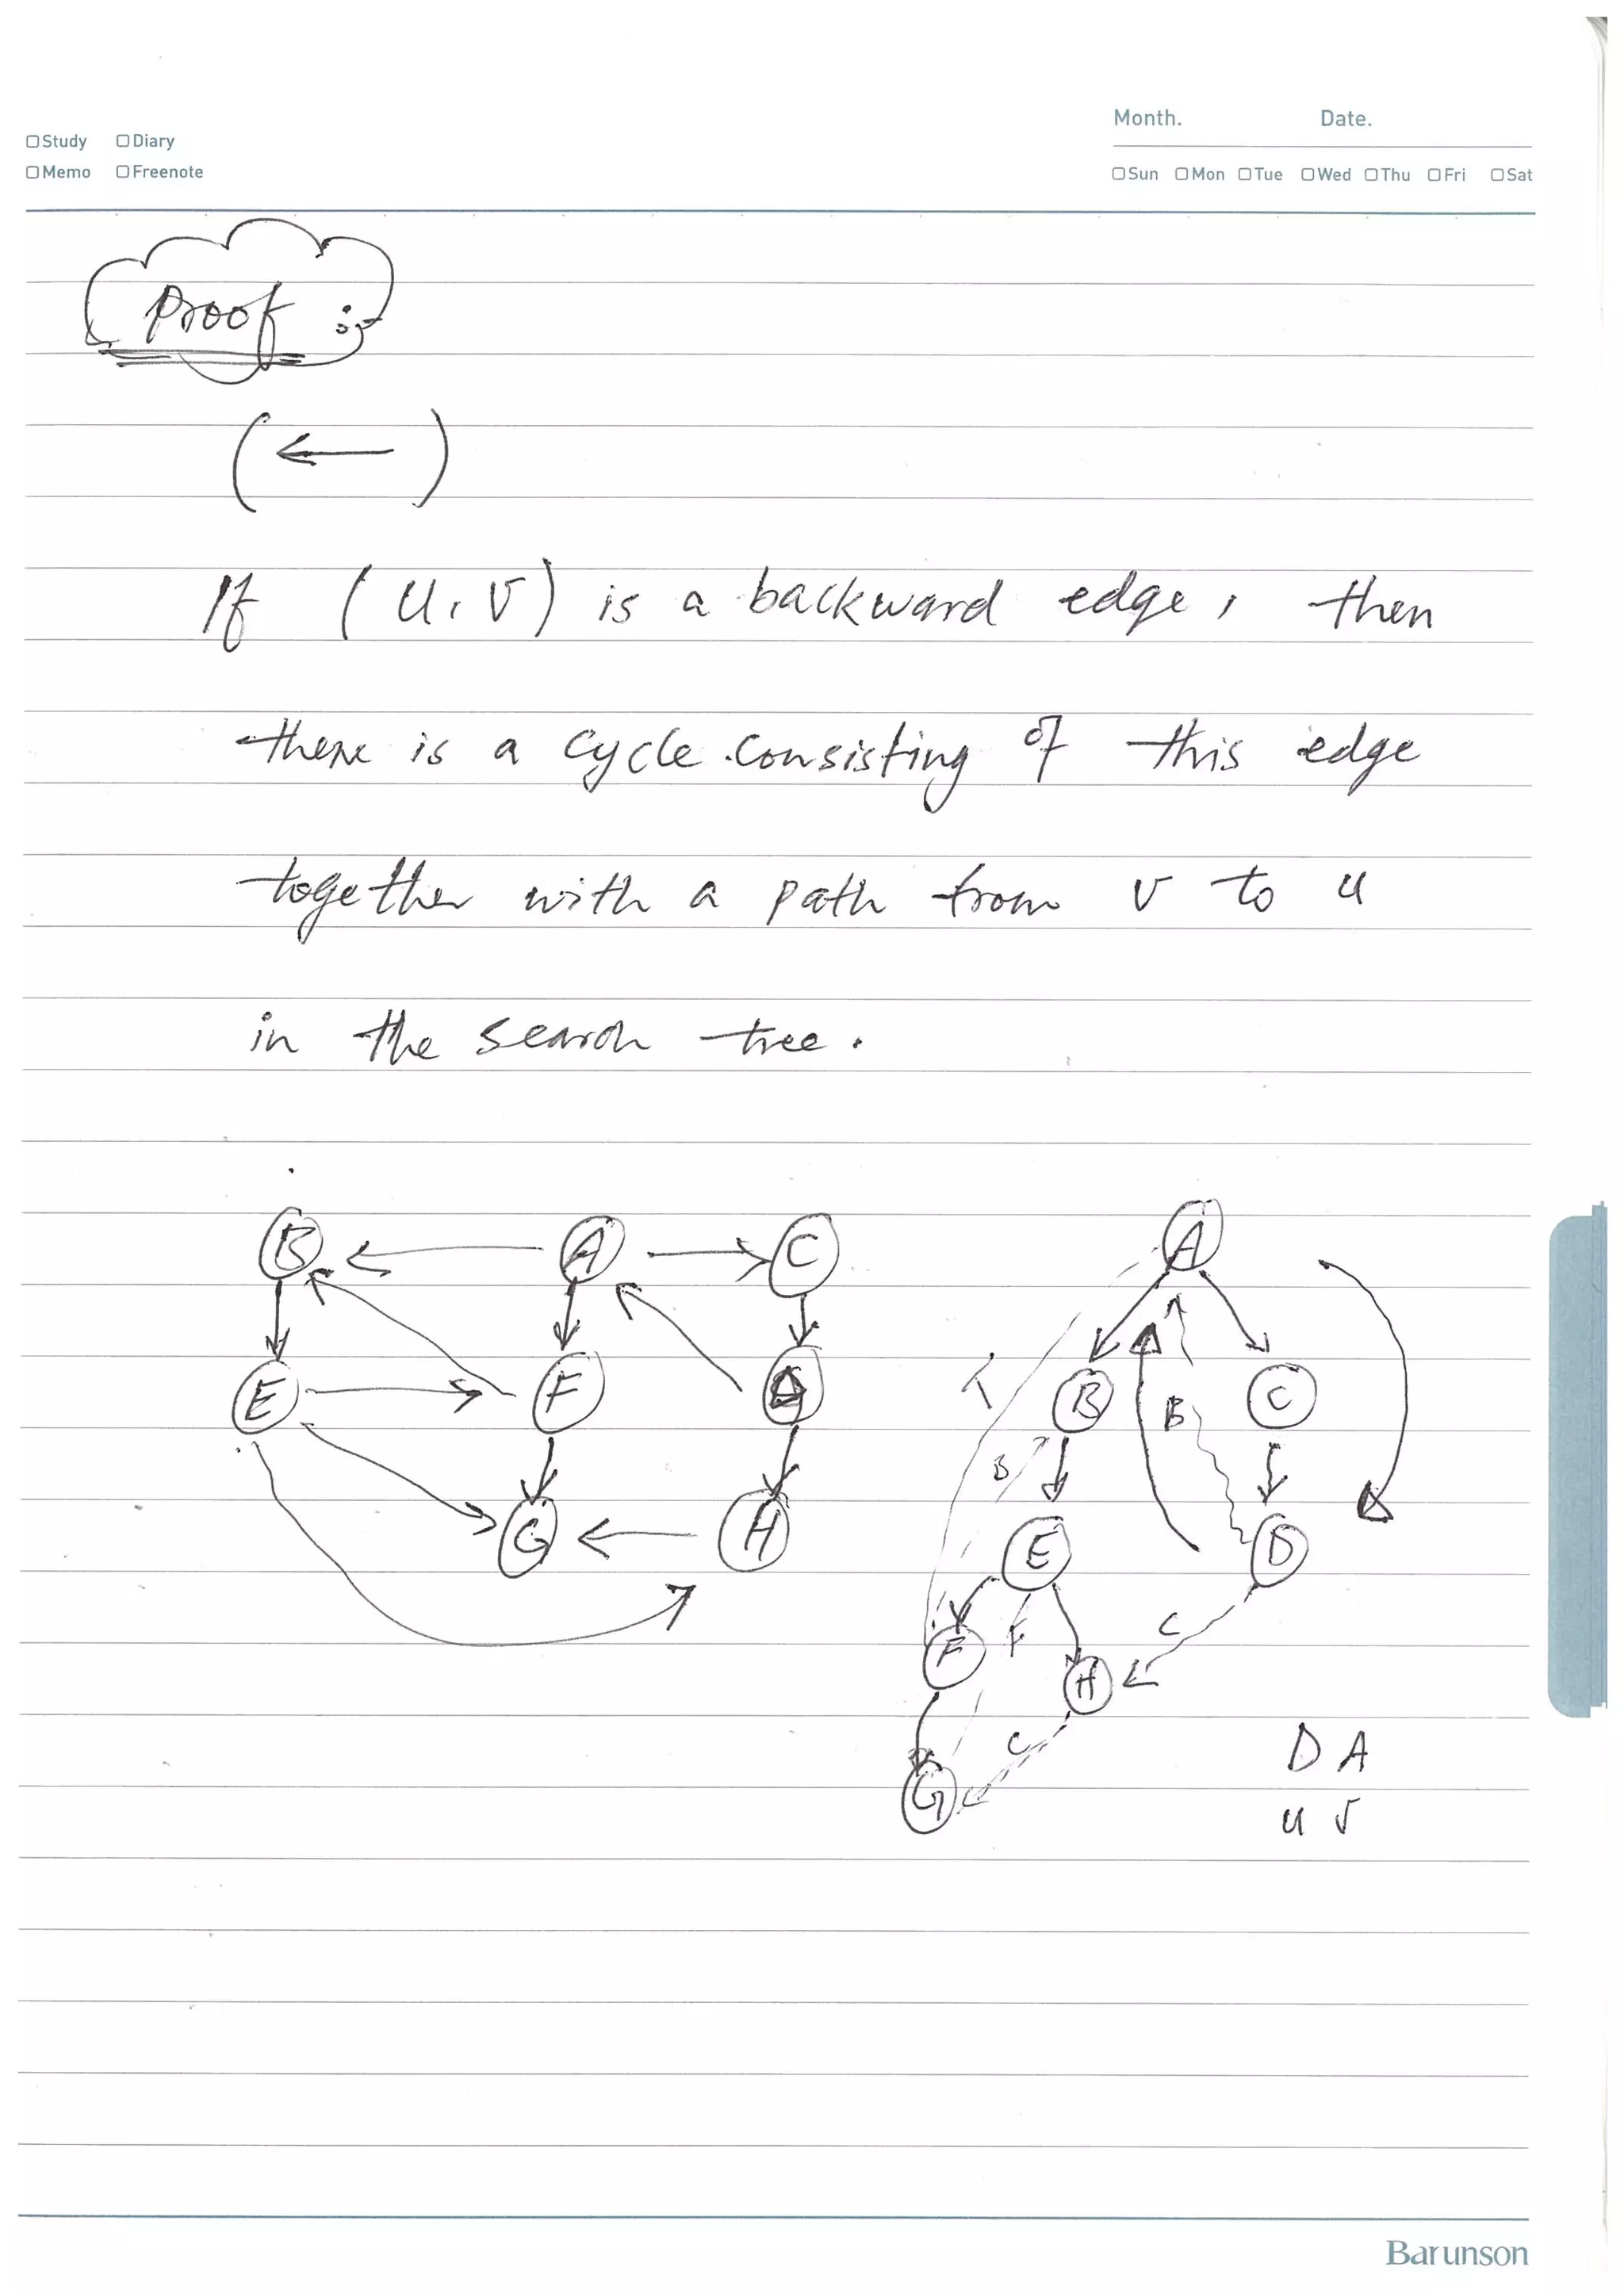 Month. Date.
□Study □Diary
□Memo □Freenote
□Sun □Mon □Tue □Wed □Thu □Fri □Sat
Proof :
(←)
If (u, v) is a backward edge, then
there is a cycle consisting of this edge
together with a path from v to u
in the search tree.
B A C
A
E F D
B B C
B
G H
E D
F F C
H
C
G
D A
u v
Barunson